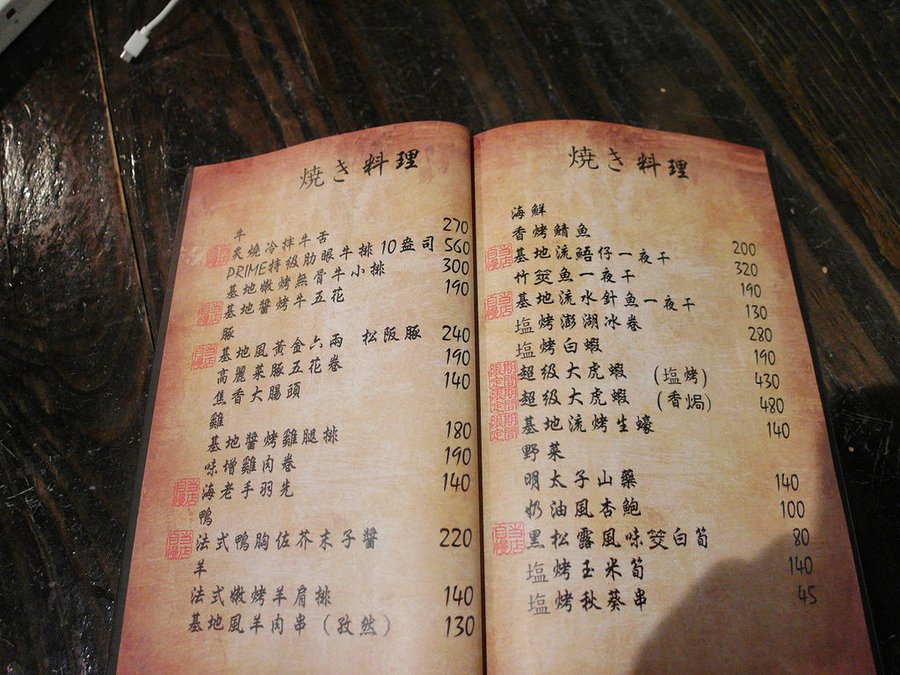 焼き料理
牛
炙燒冷摔牛舌 270
PRIME特級肋眼牛排10盎司 560
基地嫩烤無骨牛小排 300
当店自慢 基地醬烤牛五花 190
豚
当店自慢 基地風黃金六兩 松阪豚 240
高麗菜豚五花卷 190
焦香大腸頭 140
雞
基地醬烤雞腿排 180
味增雞肉卷 190
当店自慢 海老手羽先 140
鴨
当店自慢 法式鴨胸佐芥末子醬 220
羊
法式嫩烤羊肩排 140
基地風羊肉串（孜然） 130
焼き料理
海鮮
香烤鯖魚 200
当店自慢 基地流鯃仔一夜干 320
竹筴魚一夜干 190
当店自慢 基地流水針魚一夜干 130
塩烤澎湖冰卷 280
塩烤白蝦 190
期間限定 超級大虎蝦 （塩烤） 430
期間限定 超級大虎蝦 （香焗） 480
期間限定 基地流烤生蠔 140
野菜
明太子山藥 140
奶油風杏鮑 100
当店自慢 黑松露風味筊白筍 80
塩烤玉米筍 140
塩烤秋葵串 45